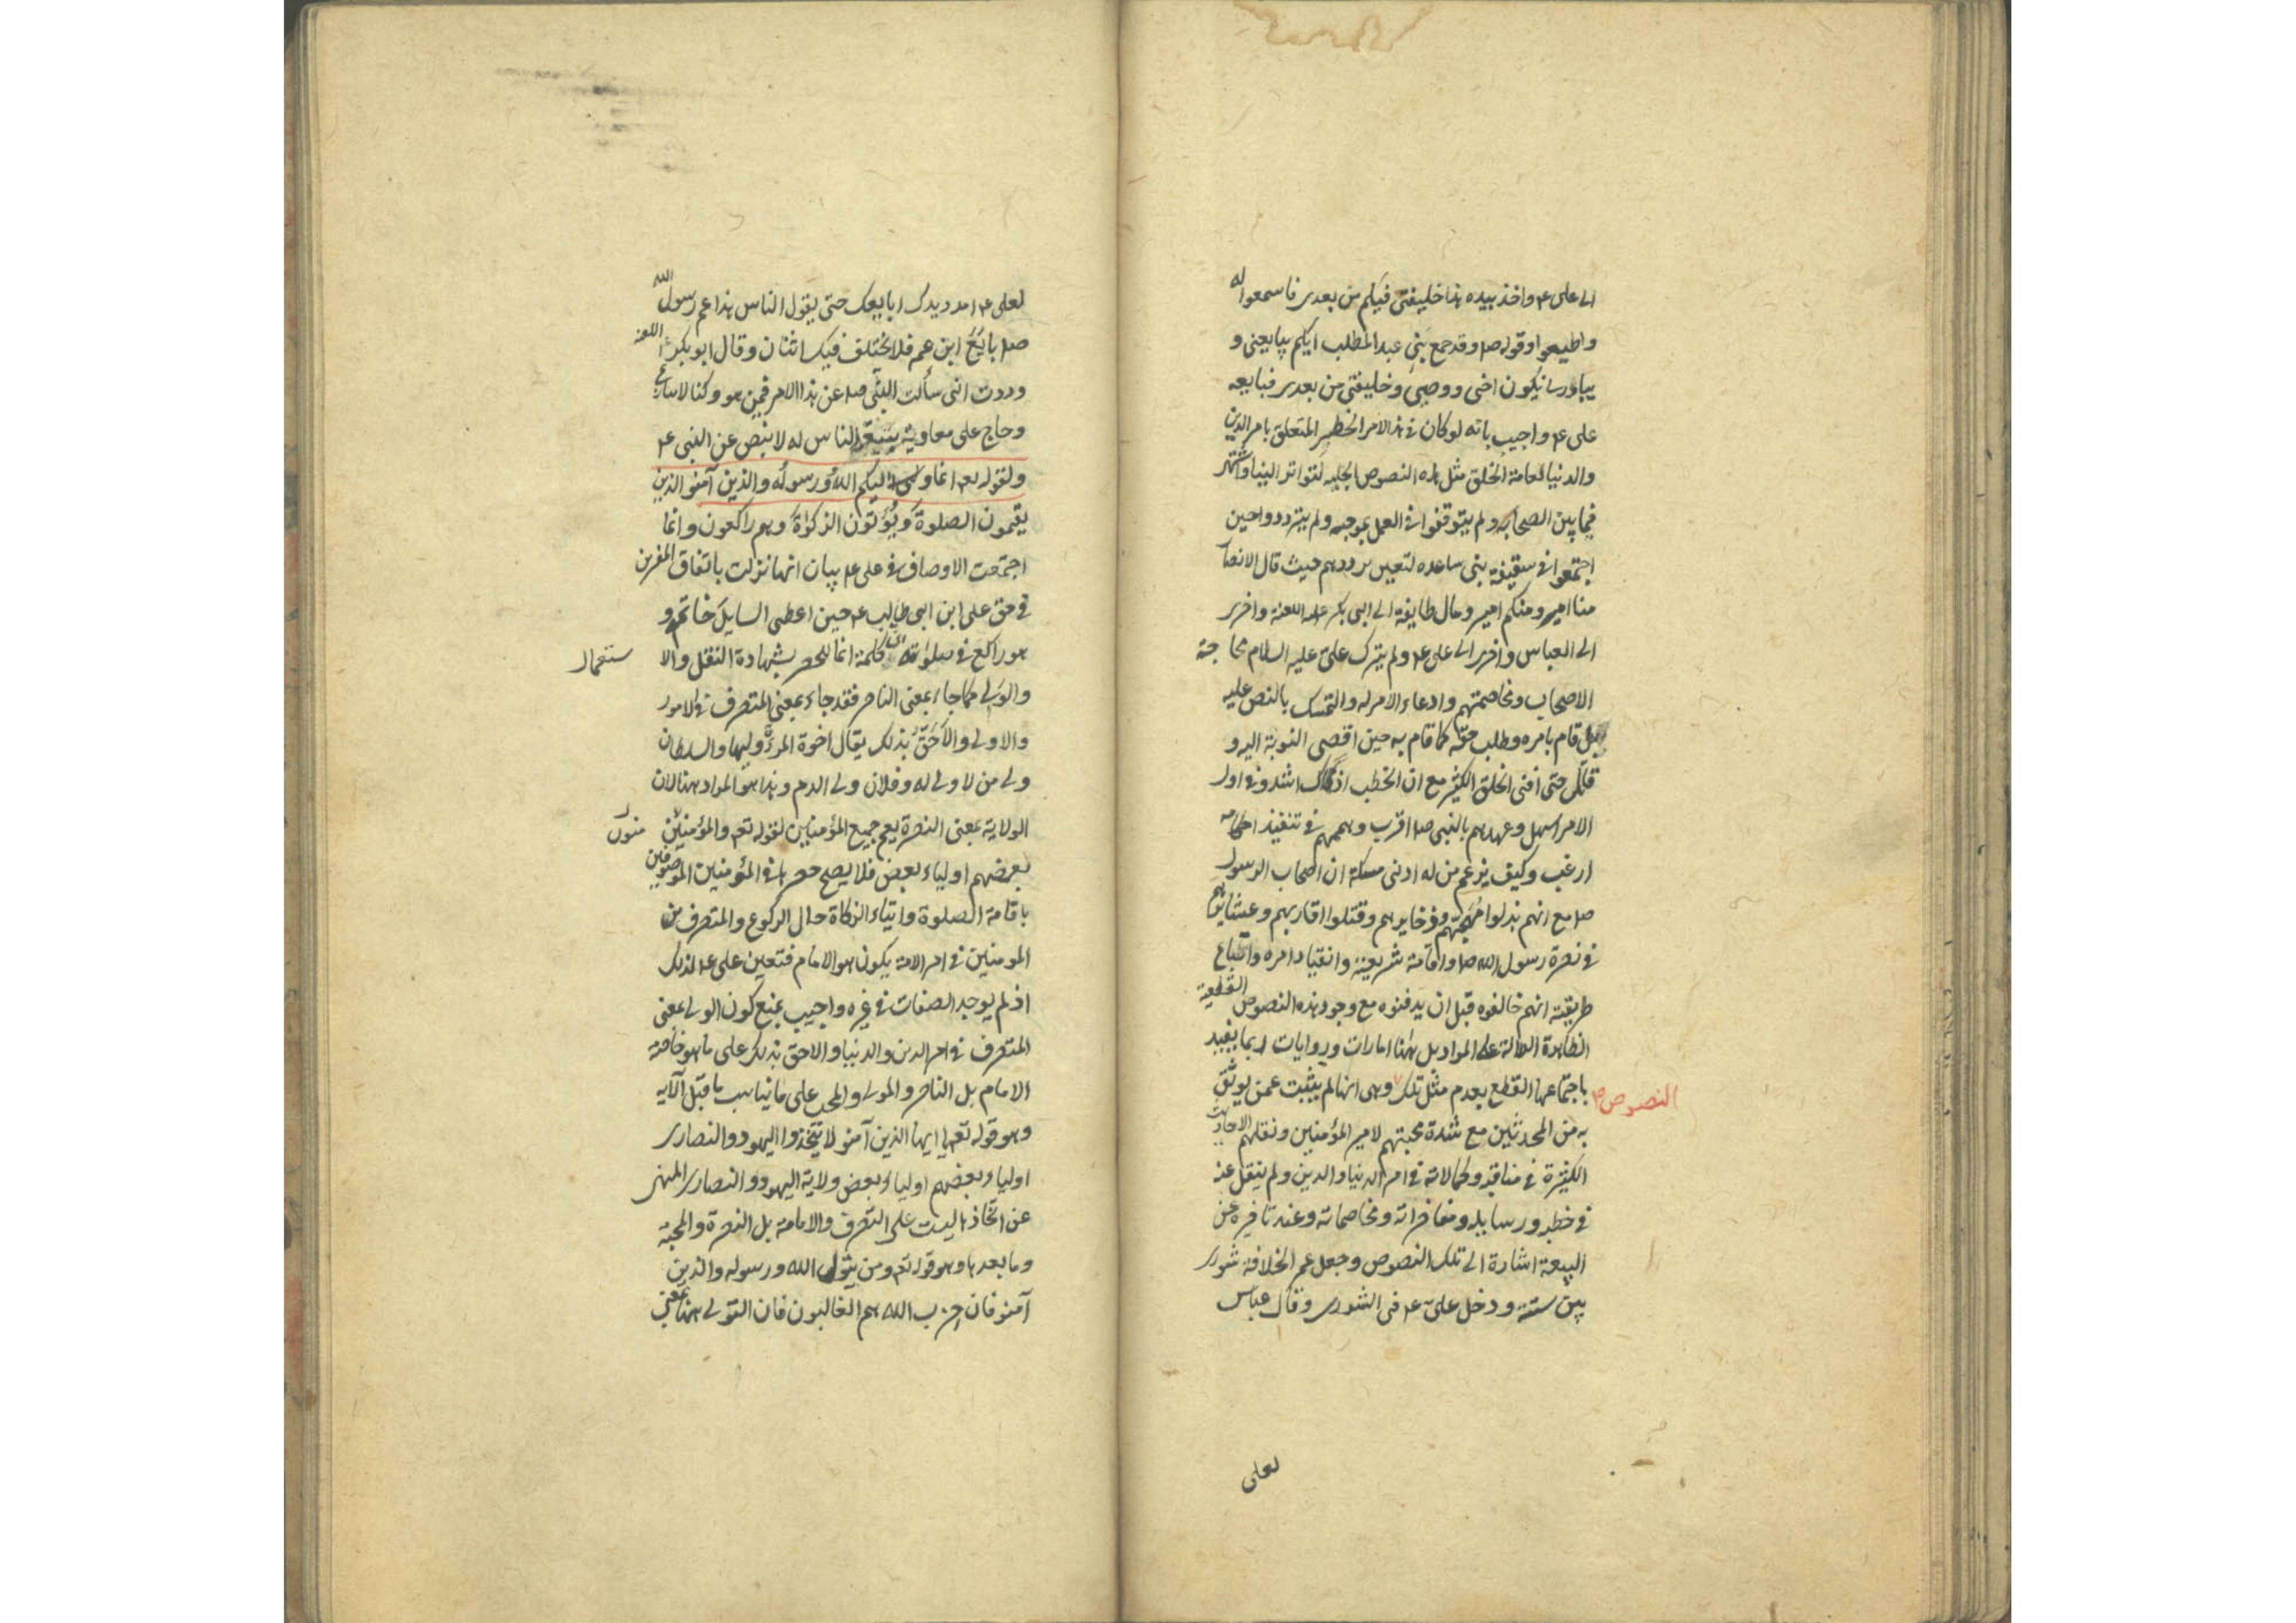 الى على ع‍م واخذ بيده هذا خليفتى فيكم من بعدى فاسمعوا له
واطيعوا وقوله ص‍م وقد جمع بنى عبد المطلب ايكم يبايعنى و
يبادر يكون اخى ووصيى وخليفتى من بعدى فبايعه
على ع‍م واجيب بانه لو كان فى هذا الامر الخطير المتعلق بامر الدين
والدنيا لعامة الخلق مثل هذه النصوص الجلية لتواتر الينا واشتهر
فيما بين الصحابه ولم يتوقفوا فى العمل بموجبه ولم يترددوا حين
اجتمعوا فى سقيفة بنى ساعده لتعيين ترددهم حيث قال الانصا
منا امير ومنكم امير ومال طايفة الى ابى بكر عليه اللعنة واخرى
الى العباس واخرى الى على ع‍م ولم يترك على عليه السلام محاجة
الاصحاب ومخاصمتهم وادعاء الامر له والتمسك بالنص عليه
بل قام بامره وطلب حقه كما قام به حين افضى النوبة اليه و
قاتل حتى افنى الخلق الكثير مع ان الخطب اذ ذاك اشد وفى اول
الامر اسهل وعهدهم بالنبى ص‍م اقرب وهممهم فى تنفيذ احكامه
ارغب وكيف يزعم من له ادنى مسكة ان اصحاب الرسول
ص‍م مع انهم بذلوا مهجتهم وذخايرهم وقتلوا اقاربهم وعشايرهم
فى نصرة رسول الله ص‍م واقامة شريعته وانقياد امره واتباع
طريقته انهم خالفوه قبل ان يدفنوه مع وجود هذه النصوص القطعية
الظاهرة الدالة على المراد بل هنا امارات وروايات ربما يفيد
باجتماعها القطع بعدم مثل تلك وهى انها لم يثبت عمن يوثق
النصوص ص‍ح
به من المحدثين مع شدة محبتهم لامير المؤمنين ونقلهم الاحاديث
الكثيرة فى مناقبه وكمالاته فى امر الدنيا والدين ولم ينقل عنه
فى خطبه ورسايله ومفاخراته ومخاصماته وعند تاخيره عن
البيعة اشارة الى تلك النصوص وجعل عمر الخلافة شورى
بين ستة ودخل على ع‍م فى الشورى وقال عباس
لعلى
لعلى ع‍م امدد يدك ابايعك حتى يقول الناس هذا عم رسول الله
ص‍م بايع ابن عمه فلا يختلف فيك اثنان وقال ابو بكر اللعنه
وددت انى سألت النبى ص‍م عن هذا الامر فيمن هو وكنا لا ننازع
وحاج على معاوية ببيعة الناس له لا بنص عن النبى ع‍م
ولقوله تعم انما وليكم الله ورسوله والذين آمنو الذين
يقيمون الصلوة ويؤتون الزكوة وهم راكعون وانما
اجتمعت الاوصاف فى على ع‍م بيان انها نزلت باتفاق المفسرين
فى حق على ابن ابى طالب ع‍م حين اعطى السايل خاتمه و
هو راكع فى صلوته كلمة انما للحصر بشهادة النقل والا ستعمال
والولى كما جاء بمعنى الناصر فقد جاء بمعنى المتصرف فى الامور
والاولى والاحق بذلك يقال اخوة المرءة وليها والسلطان
ولى من لا ولى له وفلان ولى الدم وهذا هو المراد ههنا لان
الولاية بمعنى النصرة يعم جميع المؤمنين لقوله تعم والمؤمنين منون
بعضهم اولياء بعض فلا يصح حصرها فى المؤمنين الموصوفين
باقامة الصلوة وايتاء الزكاة حال الركوع والمتصرف من
المومنين فى امر الامة يكون هو الامام فتعين على ع‍م لذلك
اذ لم يوجد الصفات فى غيره واجيب بمنع كون الولى بمعنى
المتصرف فى امر الدين والدنيا والاحق بذلك على ما هو خاصة
الامام بل الناصر والمولى والمحب على ما يناسب ما قبل الآيه
وهو قوله تعم يا ايها الذين آمنو لا تتخذوا اليهود والنصارى
اولياء بعضهم اولياء بعض ولاية اليهود والنصارى المنهى
عن اتخاذها ليست على التصرف والامامة بل النصرة والمحبة
وما بعدها وهو قوله تعم ومن يتول الله ورسوله والذين
آمنو فان حزب الله هم الغالبون فان التولى ههنا بمعنى